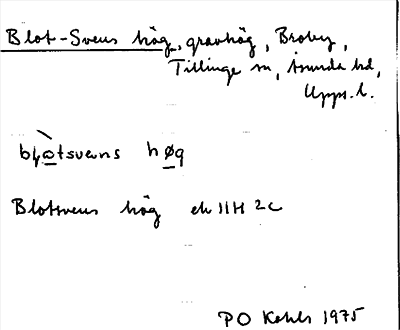 Blot-Svens hög, gravhög, Broby,
Tillinge sn, Åsunda hd,
Upps. l.
blotsvens høg
Blotsvens hög ek 11H 2c
PO Kohls 1975